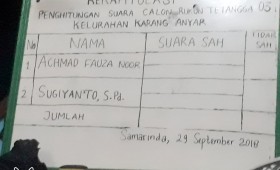 REKAPITULASI
PENGHITUNGAN SUARA CALON RUKUN TETANGGA 05
KELURAHAN KARANG ANYAR
No NAMA SUARA SAH TIDAK SAH
1 ACHMAD FAUZA NOOR
2 SUGIYANTO, S.Pd.
JUMLAH
Samarinda, 29 September 2018